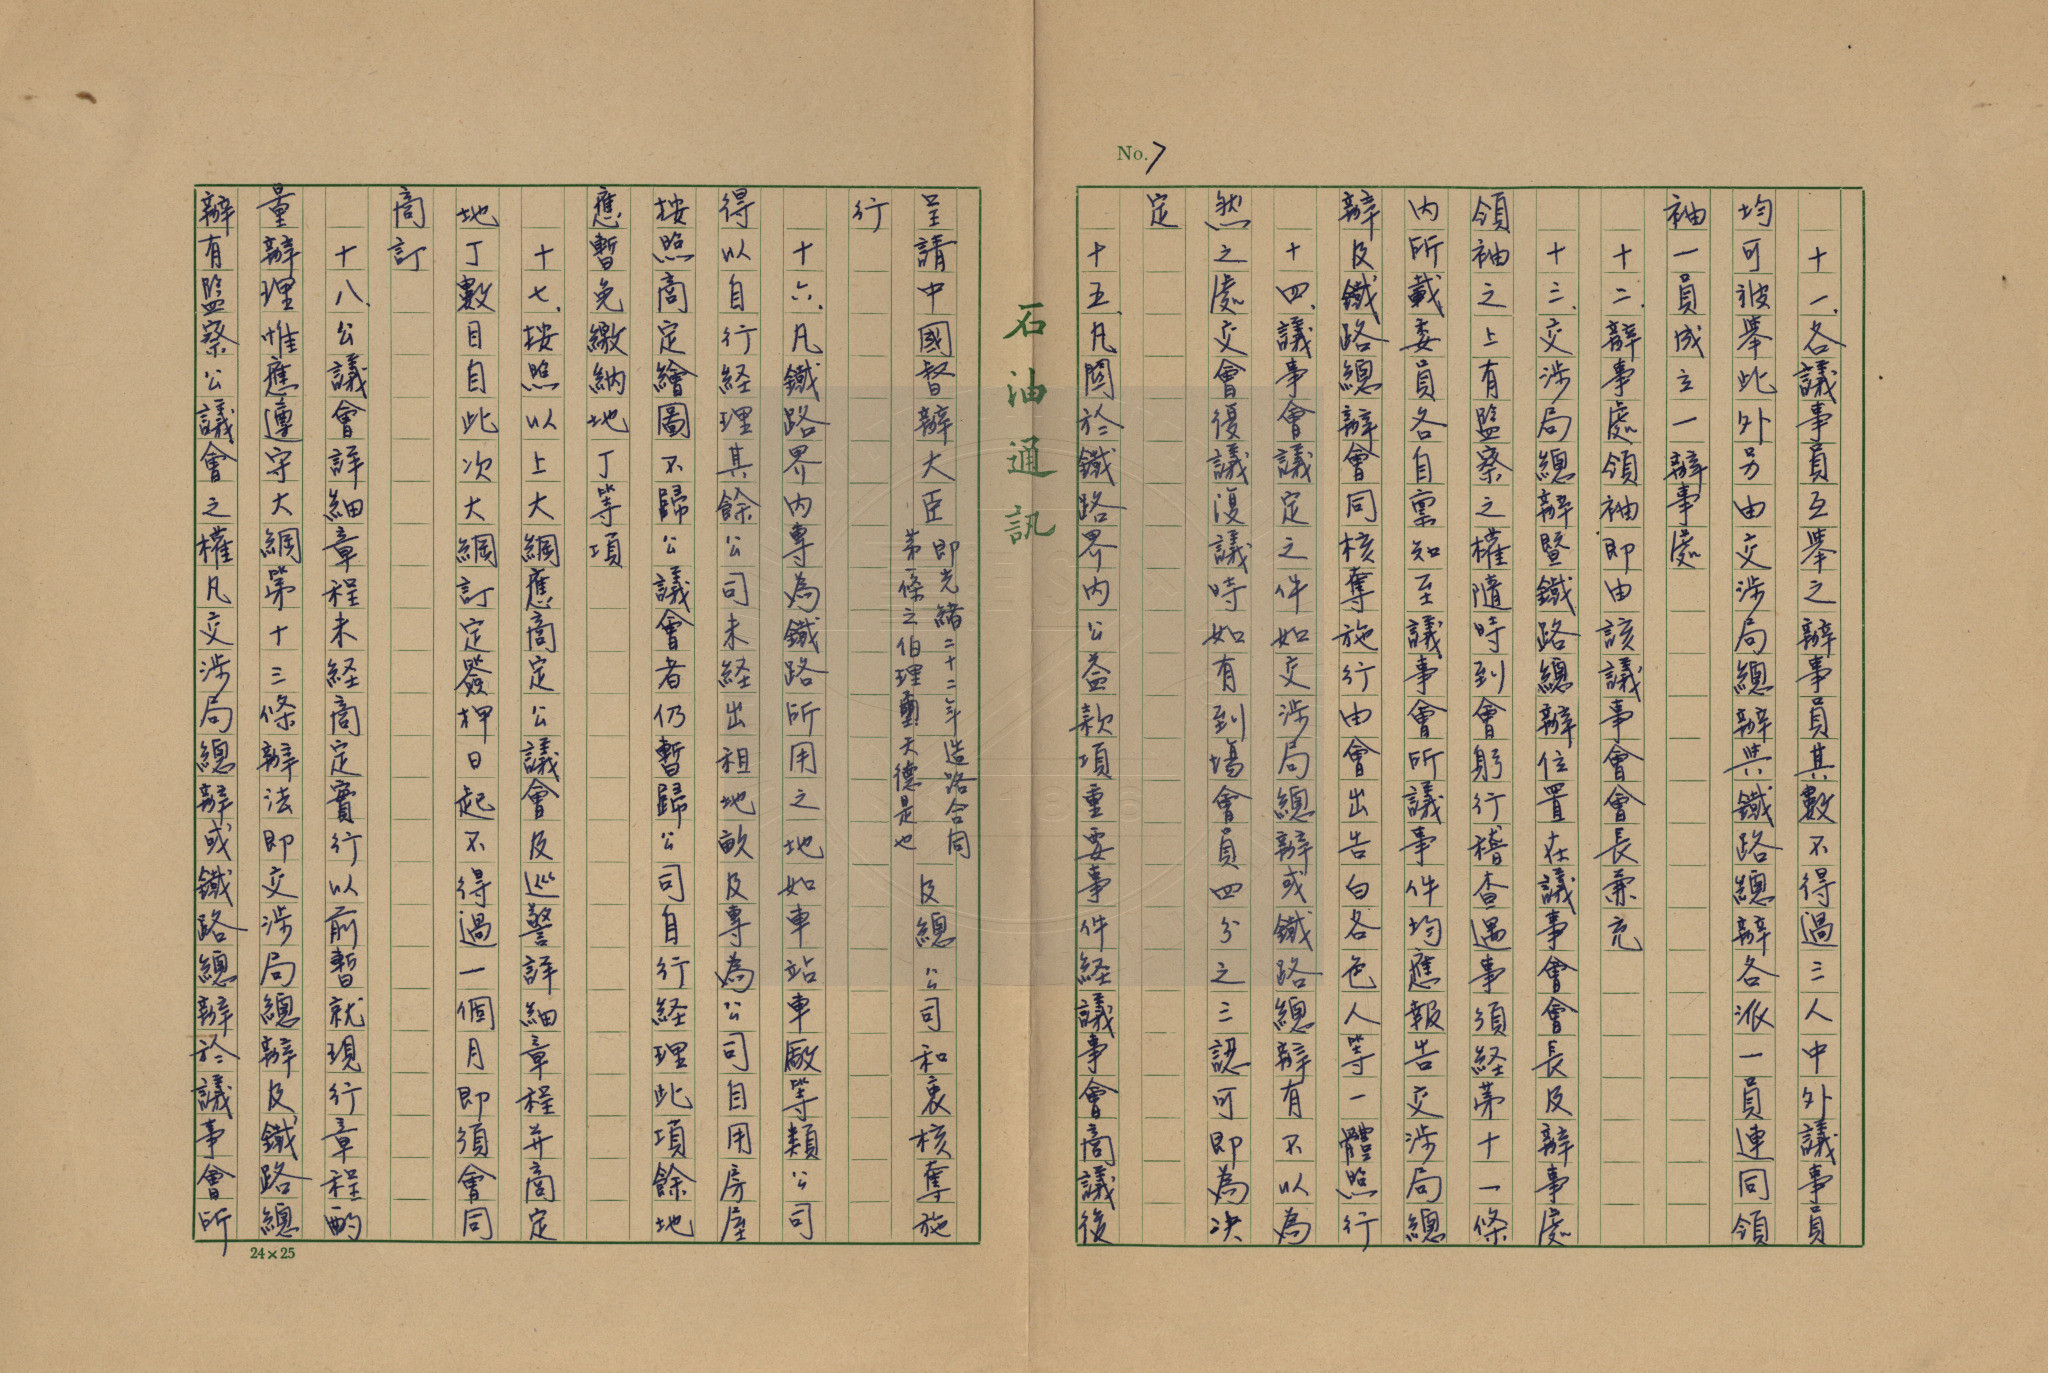 No. 7
十一、各議事員互舉之辦事員其數不得過三人中外議事員
均可被舉此外另由交涉局總辦與鐵路總辦各派一員連同領
袖一員成立一辦事處
十二、辦事處領袖即由該議事會會長兼充
十三、交涉局總辦暨鐵路總辦位置在議事會會長及辦事處
領袖之上有監察之權隨時到會躬行稽查遇事須経第十一條
內所載委員各自禀知至議事會所議事件均應報告交涉局總
辦及鐵路總辦會同核奪施行由會出告白各色人等一體照行
十四、議事會議定之件如交涉局總辦或鐵路總辦有不以為
然之處交會復議復議時如有到場會員四分之三認可即為决
定
十五、凡関於鐵路界內公益款項重要事件経議事會商議後
石油通訊
呈請中國督辦大臣即光緒二十二年造路合同第一條之伯理璽天德是也及總公司和衷核奪施
行
十六、凡鐵路界內專為鐵路所用之地如車站車厰等類公司
得以自行経理其餘公司未経出租地畝及專為公司自用房屋
按照商定繪圖不歸公議會者仍暫歸公司自行経理此項餘地
應暫免繳納地丁等項
十七、按照以上大綱應商定公議會及巡警詳細章程并商定
地丁數目自此次大綱訂定簽押日起不得過一個月即須會同
商訂
十八、公議會詳細章程未経商定實行以前暫就現行章程酌
量辦理惟應遵守大綱第十三條辦法即交涉局總辦及鐵路總
辦有監察公議會之權凡交涉局總辦或鐵路總辦於議事會所
24×25